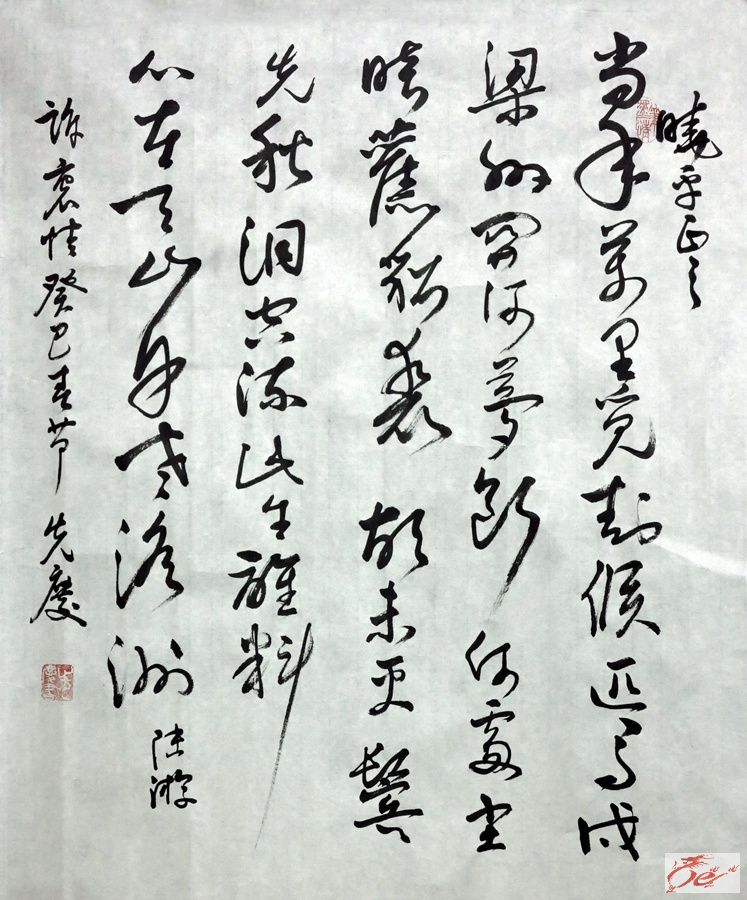 曉平正之
當年萬里覓封侯匹馬戍
梁州關河夢斷何處塵
暗舊貂裘胡未鬢
先秋泪空流此生誰料
心在天山身老滄洲
陸游
訴衷情癸巳春节先慶